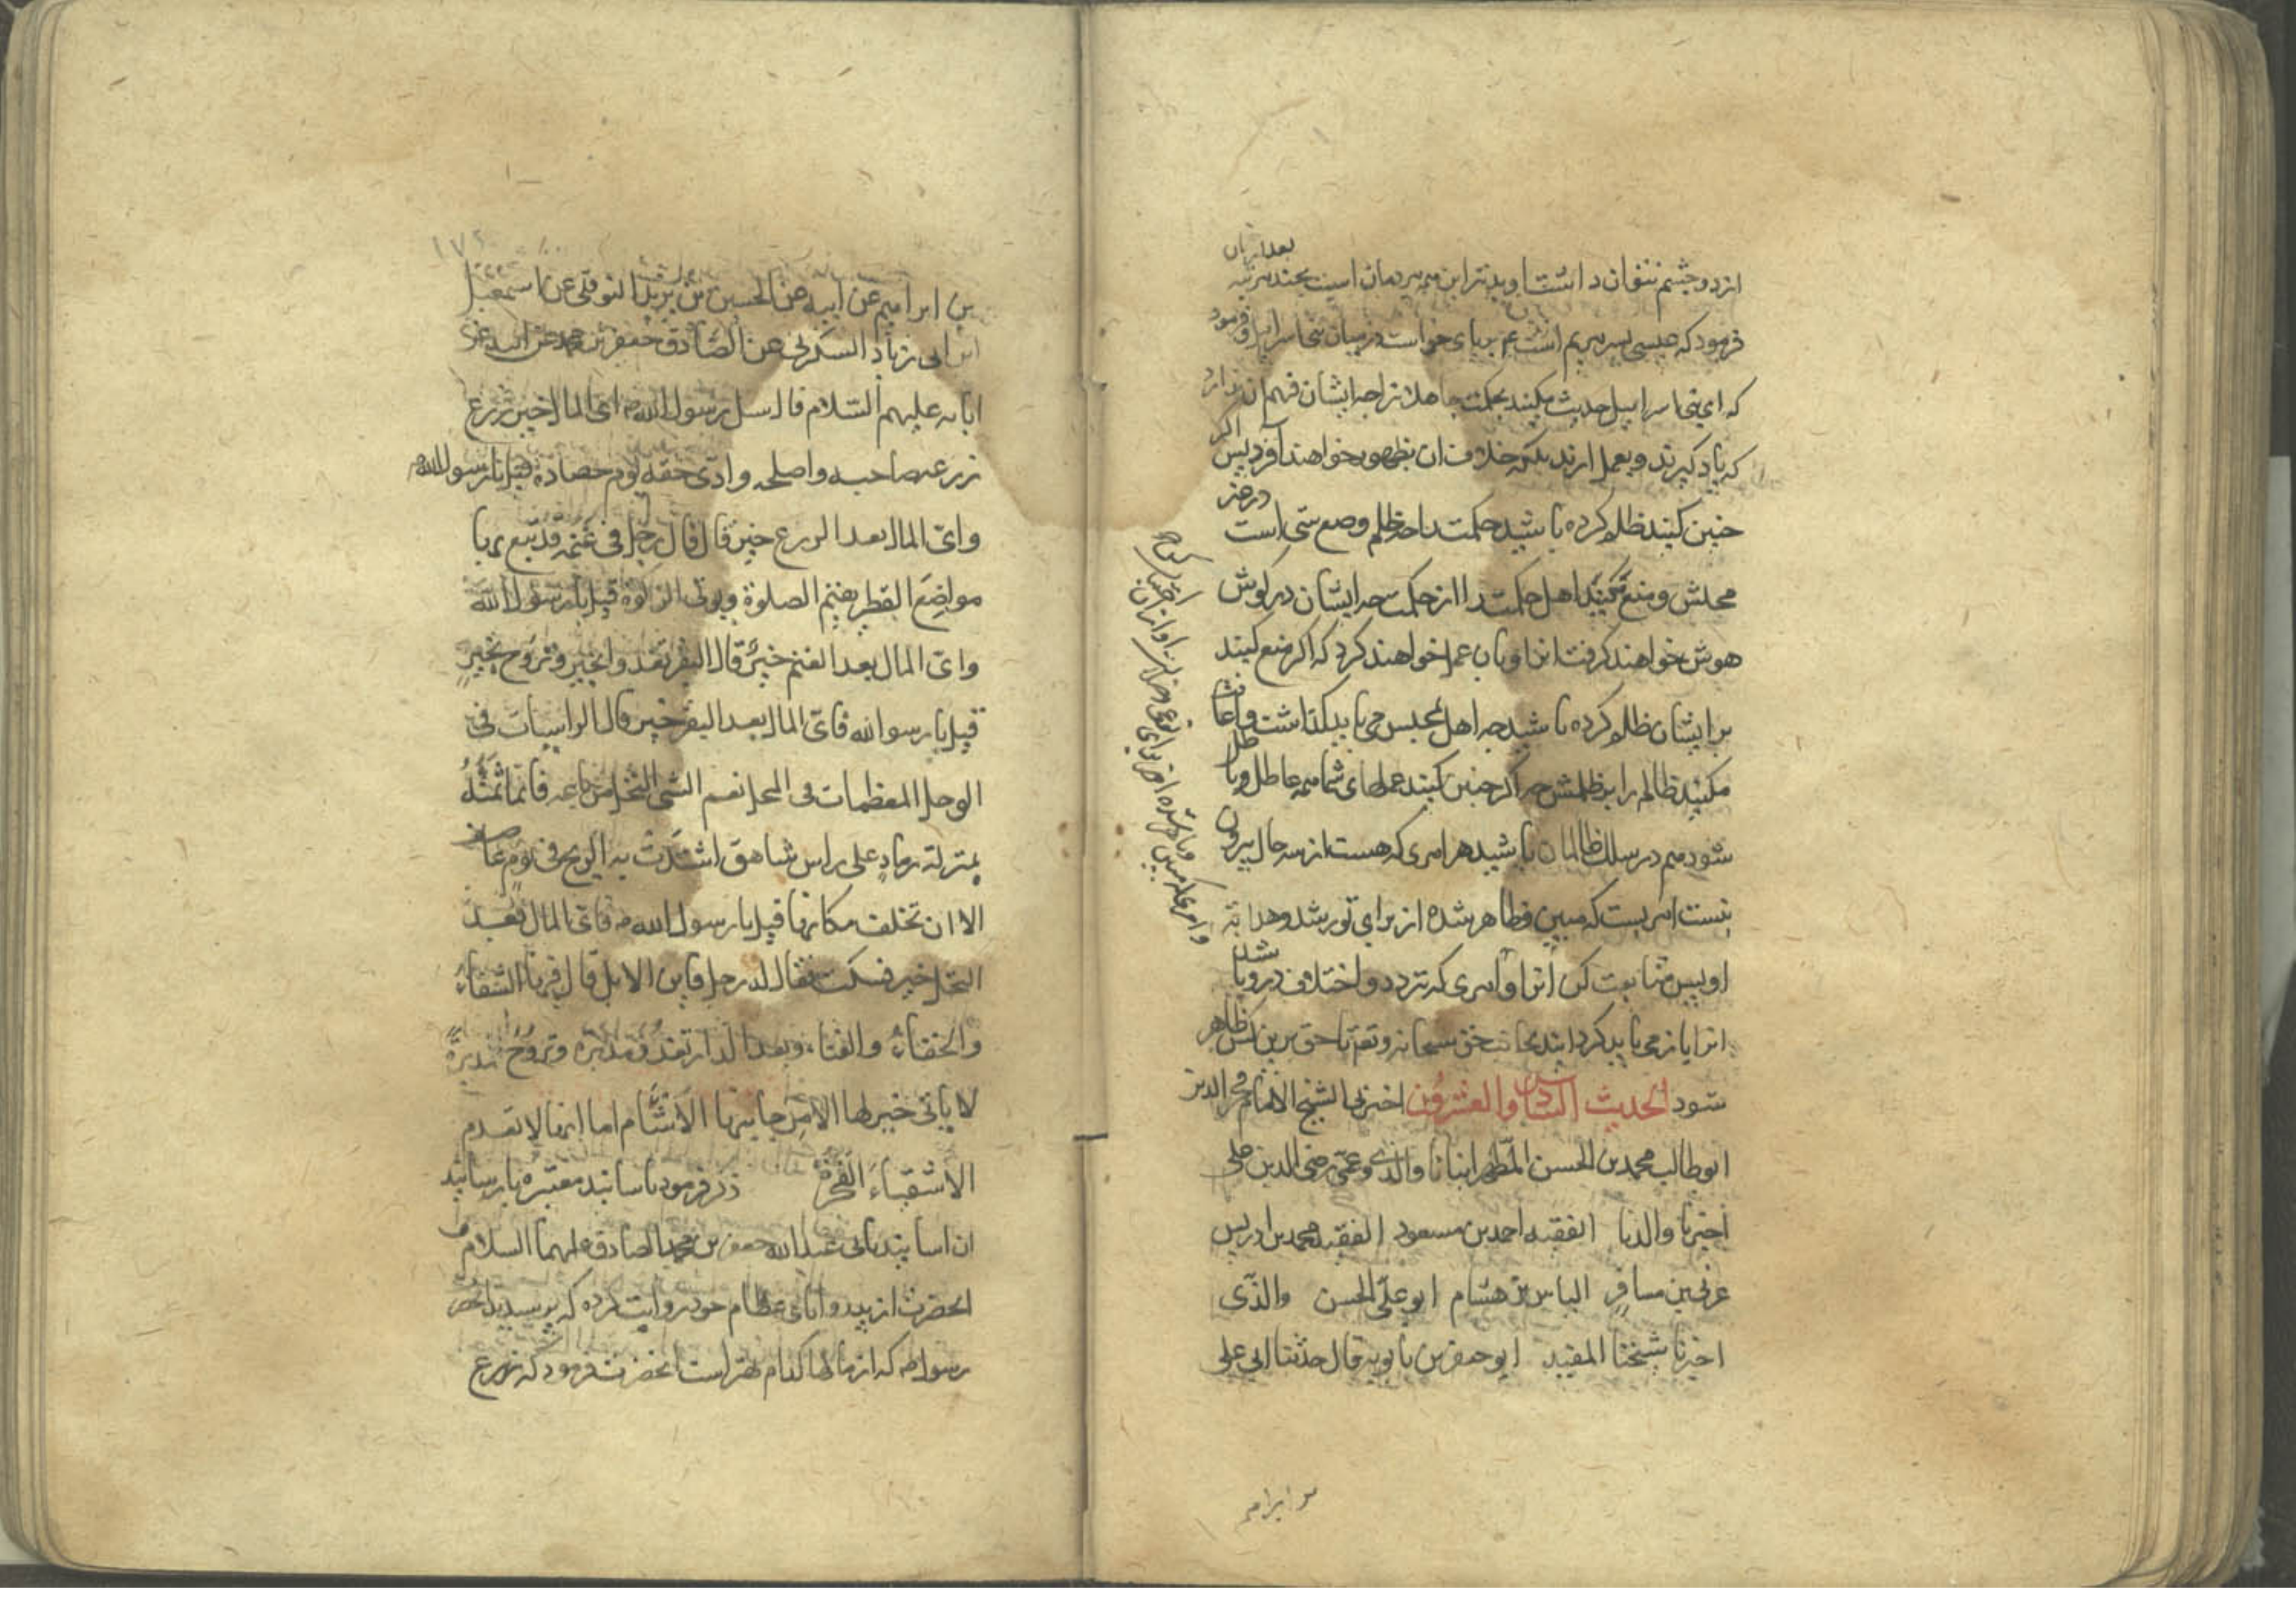 بعد ازان
از دو چشم نتوان داشت و بدتر این همه مردمان است بچند مرتبه
فرمود که عیسی پسر مریم است ع بر پای خواست در میان بنی اسرائیل و فرمود
که ای بنی اسراییل حدیث مکنید بحکمت جاهلانرا چه ایشان فهم ان ندارند
که یاد گیرند و بعمل ارند بلکه خلاف ان بظهور خواهند آورد پس اگر
چنین کنید ظلم کرده باشید حکمت را چه ظلم وضع شی است در غیر
محلش و منع مکنید اهل حکمت را از حکمت چه ایشان در کوش
هوش خواهند کرفت انرا و بان عمل خواهند کرد که اکر منع کنید
بر ایشان ظلم کرده باشید چه اهل مجلس می باید کذاشت و اعانت
مکنید ظالم را بر ظلمش چه اکر چنین کنید عملهای شما همه عاطل و باطل
شود هم در سلک ظالمان باشید هر امری که هست از سه حال بیرون
نیست امریست که مبین و ظاهر شده از برای تو رشد و هدایة
او پس متابعت کن انرا و امری که تردد و اختلاف در و باشد
انرا باز می باید کردانید بجانب حق سبحانه و تع تا حق برین کس ظاهر
شود الحدیث السادس والعشرون اخبرنا الشیخ الامام فخر الدین
ابوطالب محمد بن الحسن المطهر انبانا والدی و عمی رضی الدین علی
اخبرنا والدنا الفقیه احمد بن مسعود الفقیه محمد بن ادریس
عربی بن مسافر الیاس بن هشام ابو علی الحسن والدی
اخبرنا شیخنا المفید ابو جعفر بن بابویه قال حدثنا ابی علی
بن ابراهیم
بن ابراهیم عن ابیه عن الحسین بن یزید النوفلی عن اسمعیل
ابن ابی زیاد السکونی عن الصادق جعفر بن محمد عن ابیه عن
ابائه علیهم السلام قال سئل رسول الله ص ای المال خیر قال زرع
زرعه صاحبه واصلحه وادی حقه یوم حصاده قیل یا رسول الله ص
وای المال بعد الزرع خیر قال قال رجل فی غنمه قد تبع بها
مواضع القطر یقیم الصلوة ویوتی الزکوة قیل یا رسول الله
وای المال بعد الغنم خیر قال البقر تغدو بخیر وتروح بخیر
قیل یا رسول الله فای المال بعد البقر خیر قال الراسیات فی
الوحل المطعمات فی المحل نعم الشی النخل من باعه فانما ثمنه
بمنزلة رماد علی راس شاهق اشتدت به الریح فی یوم عاصف
الا ان تخلف مکانها قیل یا رسول الله ص فای المال بعد
النخل خیر فسکت فقال له رجل فاین الابل قال فیها الشقاء
والجفاء والعناء وبعد الدار تغدو مدبرة وتروح مدبرة
لا یاتی خیرها الا من جانبها الاشام اما انها لا تعدم
الاشقیاء الفجرة ذکر فرمود باسانید معتبره یا رسانید
ان اسانید بابی عبدالله جعفر بن محمد الصادق علیهما السلام
انحضرت از پدر و ابای عظام خود روایت کرده که پرسیدند از حضرت
رسول ص که از مالها کدام بهتر است انحضرت فرمود که زرع